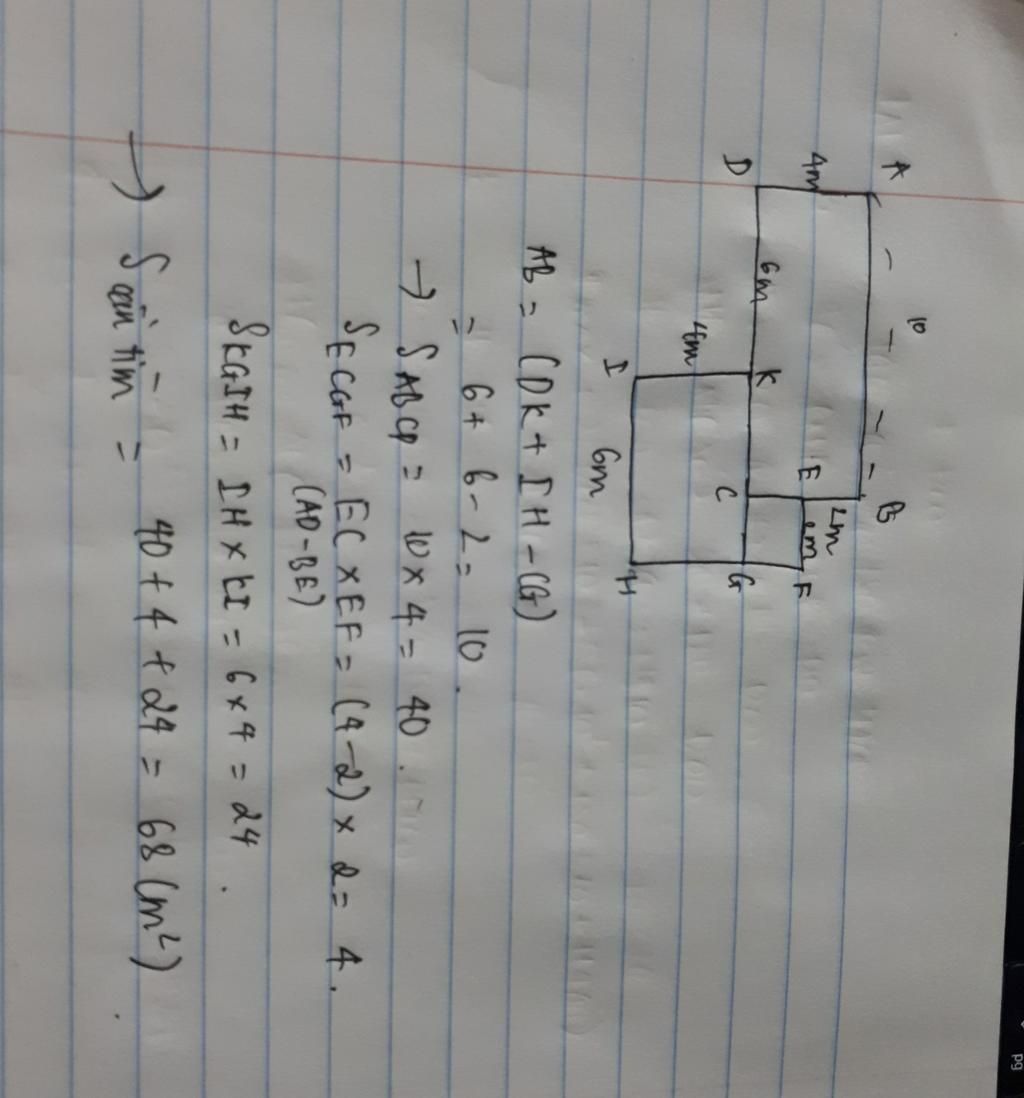 A
10
B
4m
2m
E
2m
F
D
6m
K
C
G
4m
I
6m
H
AB = (DK + IH - CG)
= 6 + 6 - 2 = 10.
→ S ABCD = 10 x 4 = 40.
S ECGF = EC x EF = (4-2) x 2 = 4.
(AD - BE)
S KGIH = IH x KI = 6 x 4 = 24.
→ S cần tìm = 40 + 4 + 24 = 68 (m²).
pg